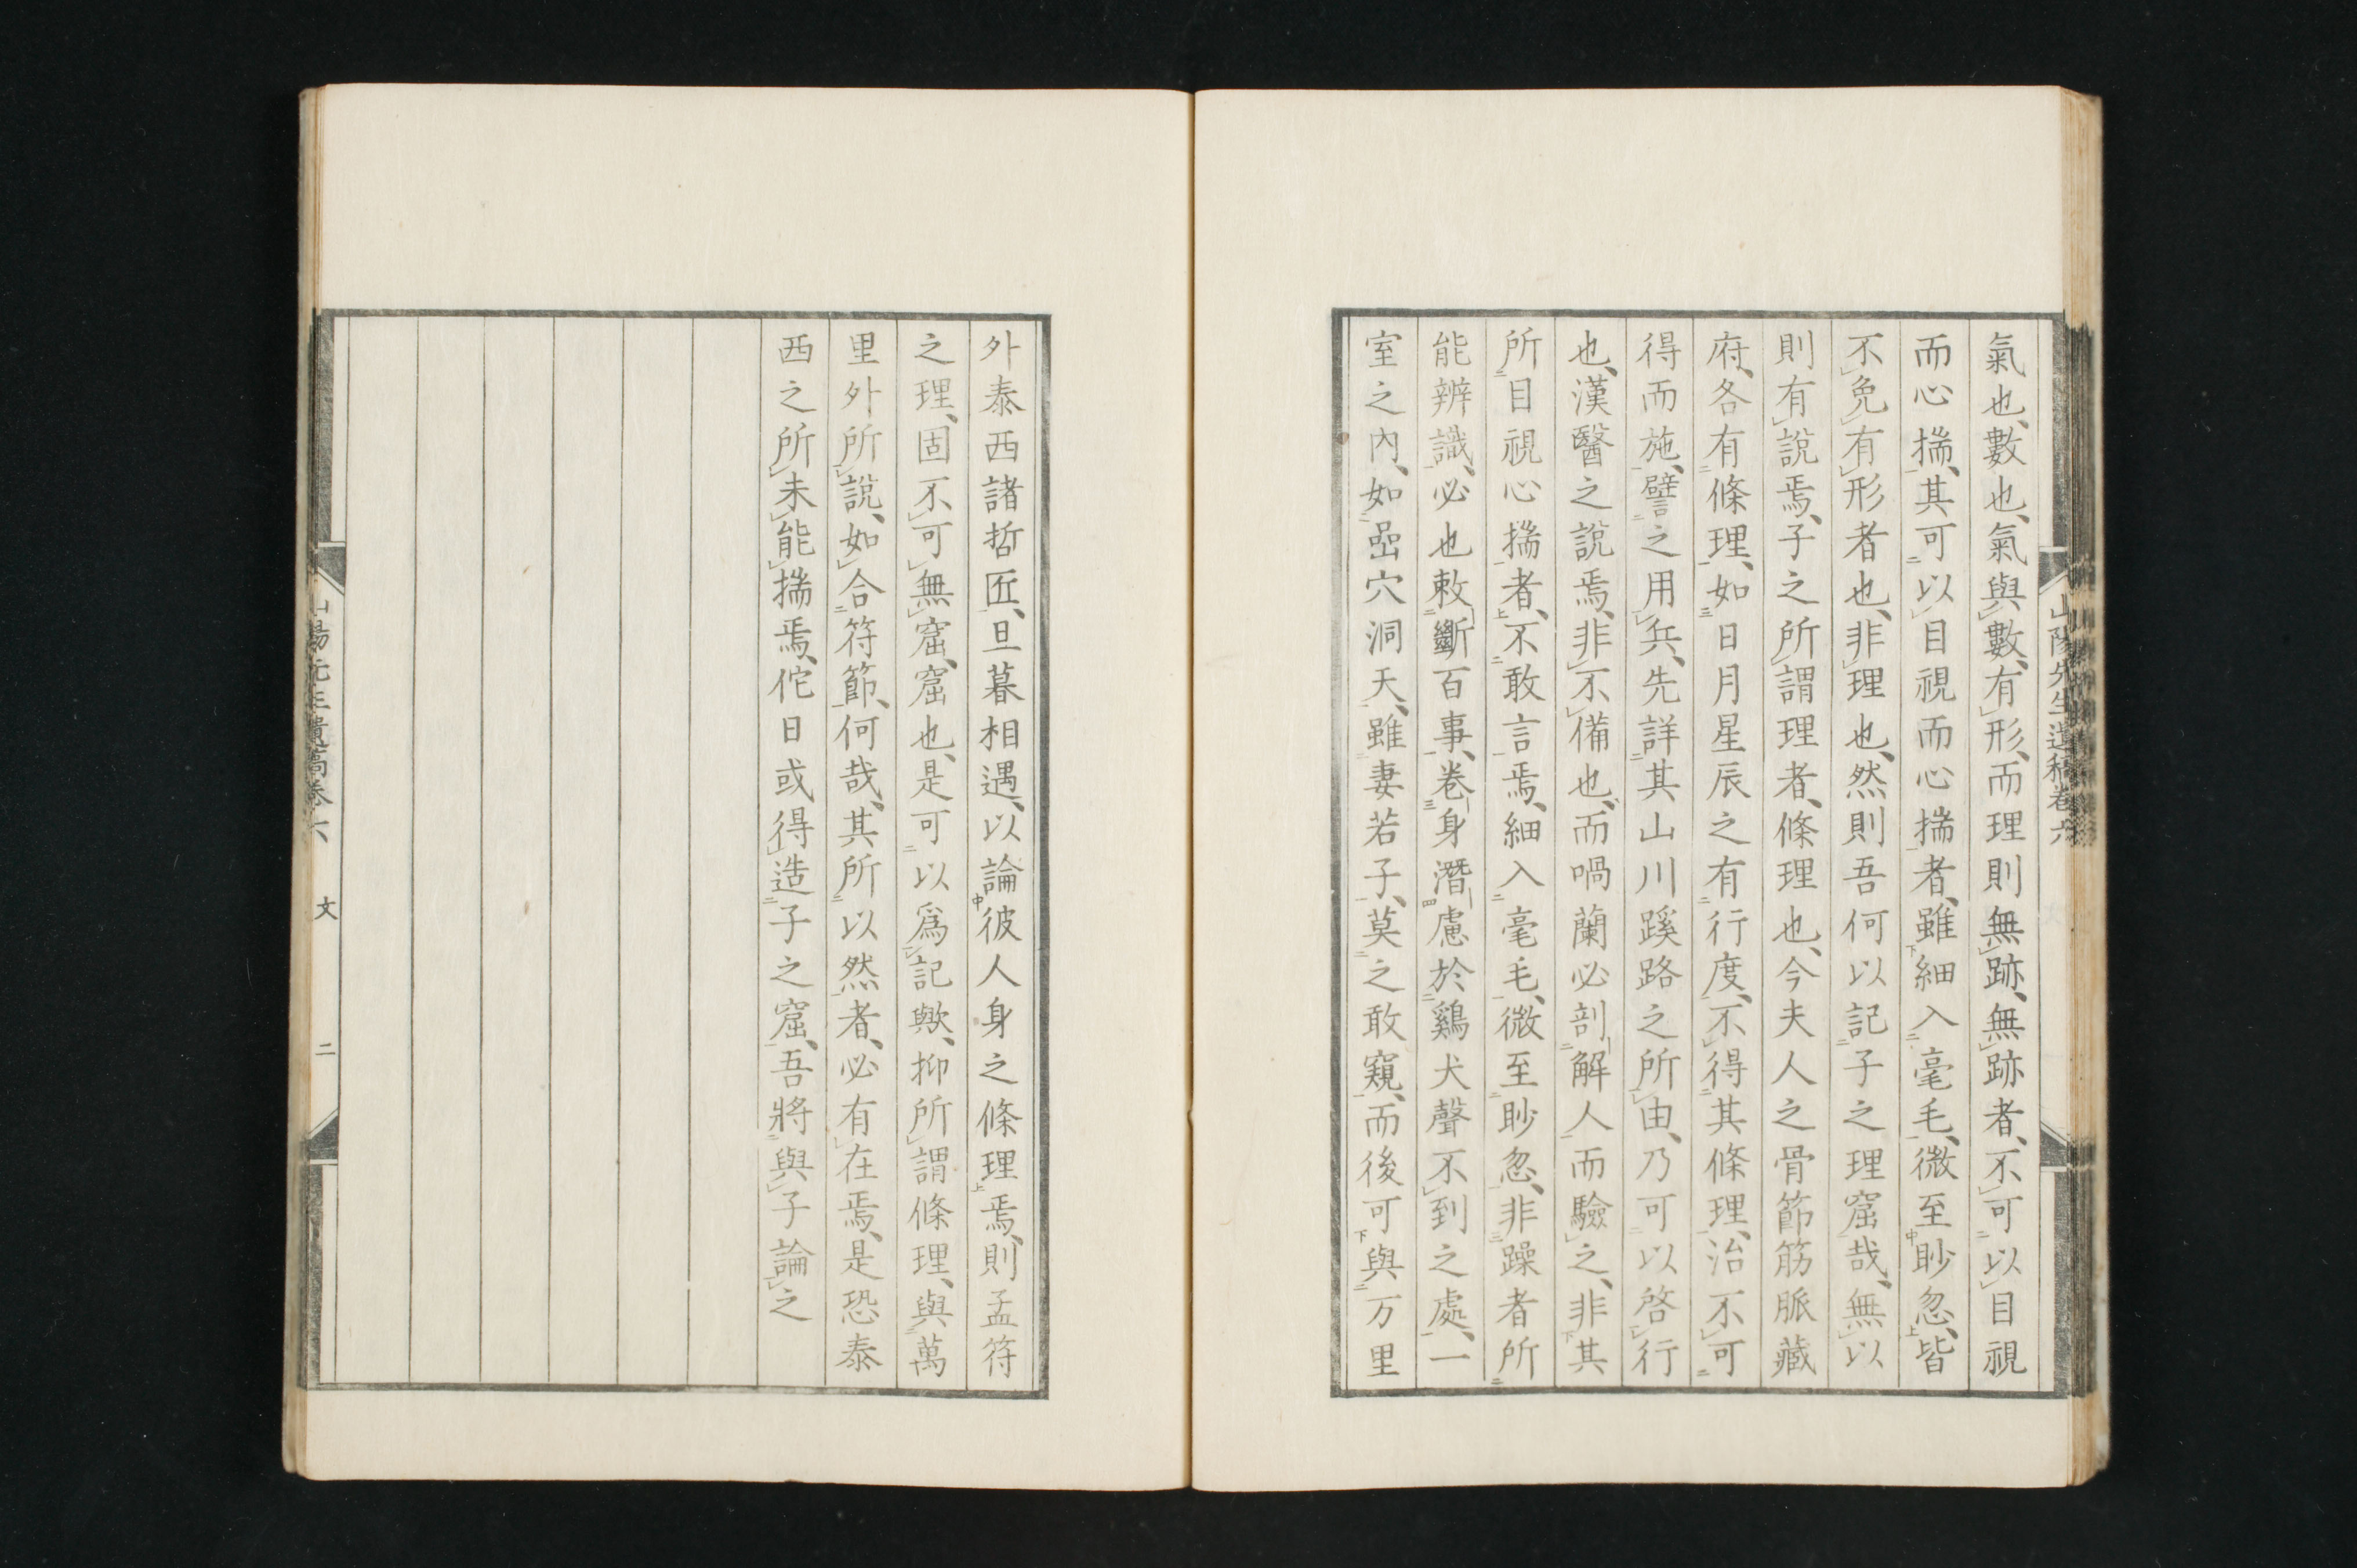 山陽先生遺稿卷六
氣也、數也、氣與數、有形、而理則無跡、無跡者、不可以目視
而心揣、其可以目視而心揣者、雖細入毫毛、微至眇忽、皆
不免有形者也、非理也、然則吾何以記子之理窟哉、無以
則有說焉、子之所謂理者、條理也、今夫人之骨節筋脈藏
府、各有條理、如日月星辰之有行度、不得其條理、治不可
得而施、譬之用兵、先詳其山川蹊路之所由、乃可以啓行
也、漢醫之說焉、非不備也、而喎蘭必剖解人而驗之、非其
所目視心揣者、不敢言焉、細入毫毛、微至眇忽、非躁者所
能辨識、必也敕斷百事、卷身潛慮於鷄犬聲不到之處、一
室之內、如嵒穴洞天、雖妻若子、莫之敢窺、而後可與万里
外泰西諸哲匠、旦暮相遇、以論彼人身之條理焉、則孟符
之理、固不可無窟、窟也、是可以爲記歟、抑所謂條理、與萬
里外所說、如合符節、何哉、其所以然者、必有在焉、是恐泰
西之所未能揣焉、佗日或得造子之窟、吾將與子論之
山陽先生遺稿卷六 文 二